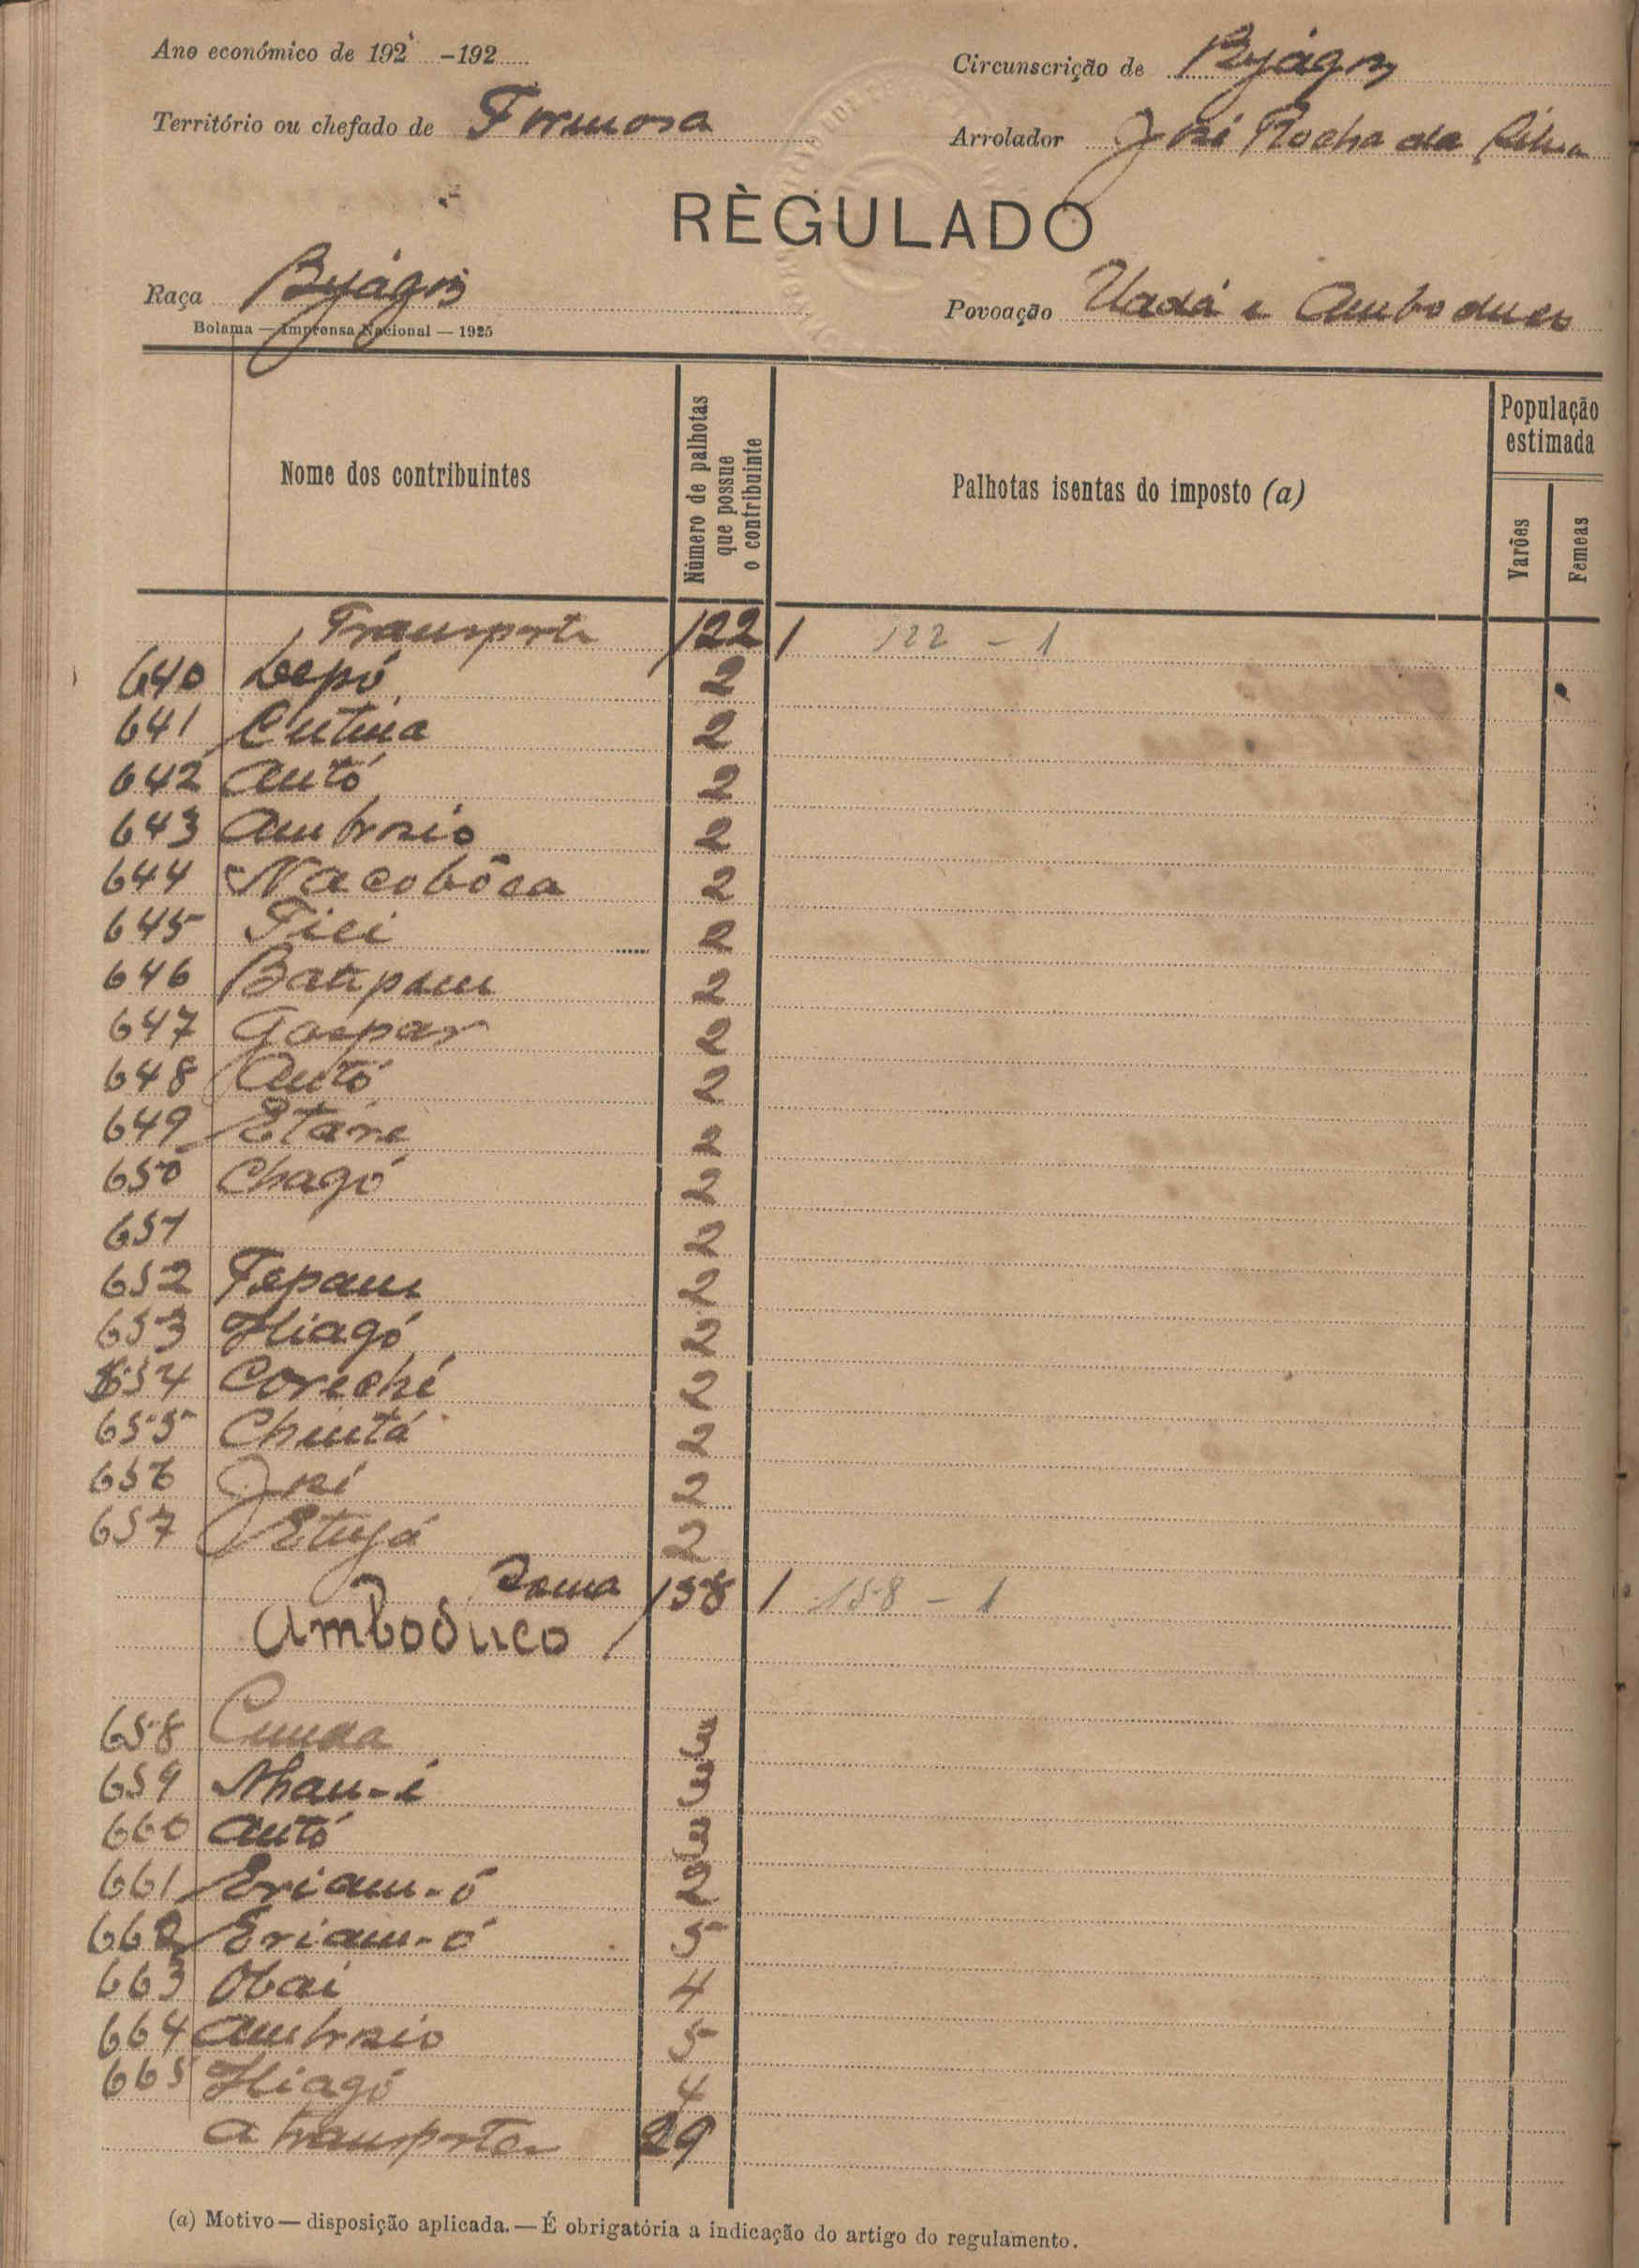 Ano económico de 192 -192
Circunscrição de Byágos
Território ou chefado de Formosa
Arrolador José Rocha da Silva
RÈGULADO
Raça Byágós
Povoação Uadá e Amboduco
Bolama — Imprensa Nacional — 1925
Nome dos contribuintes
Número de palhotas que possue o contribuinte
Palhotas isentas do imposto (a)
População estimada
Varões
Femeas
Transporte 122 1 122 - 1
640 Depó 2
641 Cutina 2
642 Autó 2
643 Ambrosio 2
644 Nacobôca 2
645 Tici 2
646 2
647 Gaspar 2
648 Autó 2
649 Etáre 2
650 Chagó 2
651 2
652 Tepam 2
653 Hiagó 2
654 Coreché 2
655 Chintá 2
656 José 2
657 Etujá 2
Soma 158 1 158 - 1
Amboduco
658 Cunda 3
659 Nhau-é 3
660 Autó 3
661 Eriam-ó 2
662 Eriam-ó 5
663 Obai 4
664 Ambrosio 5
665 Hiagó 4
a transportar 29
(a) Motivo — disposição aplicada. — É obrigatória a indicação do artigo do regulamento.